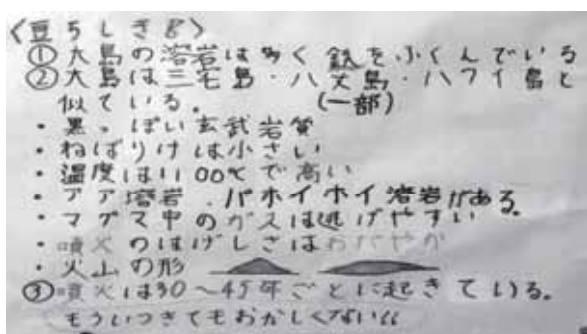 〈豆ちしき8〉
①大島の溶岩は多く鉄をふくんでいる
②大島は三宅島・八丈島・ハワイ島と
似ている。 (一部)
・黒っぽい玄武岩質
・ねばりけは小さい
・温度は1100℃で高い
・アア溶岩.パホイホイ溶岩がある。
・マグマ中のガスは逃げやすい
・噴火のはげしさはおだやか
・火山の形
③噴火は30〜45年ごとに起きている。
もういつきてもおかしくない